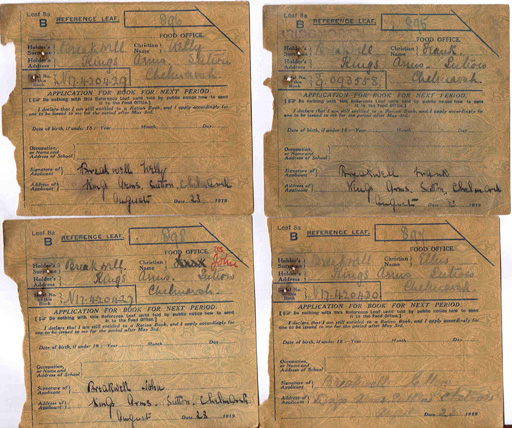 Leaf 8a
B REFERENCE LEAF.
896
FOOD OFFICE.
Holder's Surname Breakwell Christian Name
Holder's Address Kings Arms, Sutton
Chelmarsh
No. Book N17.420429
APPLICATION FOR BOOK FOR NEXT PERIOD.
Do nothing with this Reference Leaf until told by public notice how to send it to the Food Office.
I declare that I am still entitled to a Ration Book, and I apply accordingly for one to be issued to me for the period after May 3rd.
Date of birth, if under 18: Year Month Day
Occupation, or Name and Address of School
Signature of Applicant Breakwell
Address of Applicant Kings Arms, Sutton, Chelmarsh
August 23 1919
Leaf 8a
B REFERENCE LEAF.
895
FOOD OFFICE.
Holder's Surname Breakwell Christian Name Frank
Holder's Address Kings Arms, Sutton
Chelmarsh
APPLICATION FOR BOOK FOR NEXT PERIOD.
Do nothing with this Reference Leaf until told by public notice how to send it to the Food Office.
I declare that I am still entitled to a Ration Book, and I apply accordingly for one to be issued to me for the period after May 3rd.
Date of birth, if under 18: Year Month Day
Occupation, or Name and Address of School
Signature of Applicant Breakwell Frank
Address of Applicant Kings Arms, Sutton, Chelmarsh
August 1919
Leaf 8a
B REFERENCE LEAF.
898
FOOD OFFICE.
Holder's Surname Breakwell Christian Name John
Holder's Address Kings Arms, Sutton
Chelmarsh
N17.420427
APPLICATION FOR BOOK FOR NEXT PERIOD.
Do nothing with this Reference Leaf until told by public notice how to send it to the Food Office.
I declare that I am still entitled to a Ration Book, and I apply accordingly for one to be issued to me for the period after May 3rd.
Date of birth, if under 18: Year Month Day
Occupation, or Name and Address of School
Signature of Applicant Breakwell John
Address of Applicant Kings Arms, Sutton, Chelmarsh
August 23 1919
Leaf 8a
B REFERENCE LEAF.
FOOD OFFICE.
Holder's Surname Breakwell Christian Name
Holder's Address Kings Arms, Sutton
Chelmarsh
N17.420430
APPLICATION FOR BOOK FOR NEXT PERIOD.
Do nothing with this Reference Leaf until told by public notice how to send it to the Food Office.
I declare that I am still entitled to a Ration Book, and I apply accordingly for one to be issued to me for the period after May 3rd.
Date of birth, if under 18: Year Month Day
Occupation, or Name and Address of School
Signature of Applicant Breakwell
Address of Applicant Kings Arms Sutton Chelmarsh
August 1919